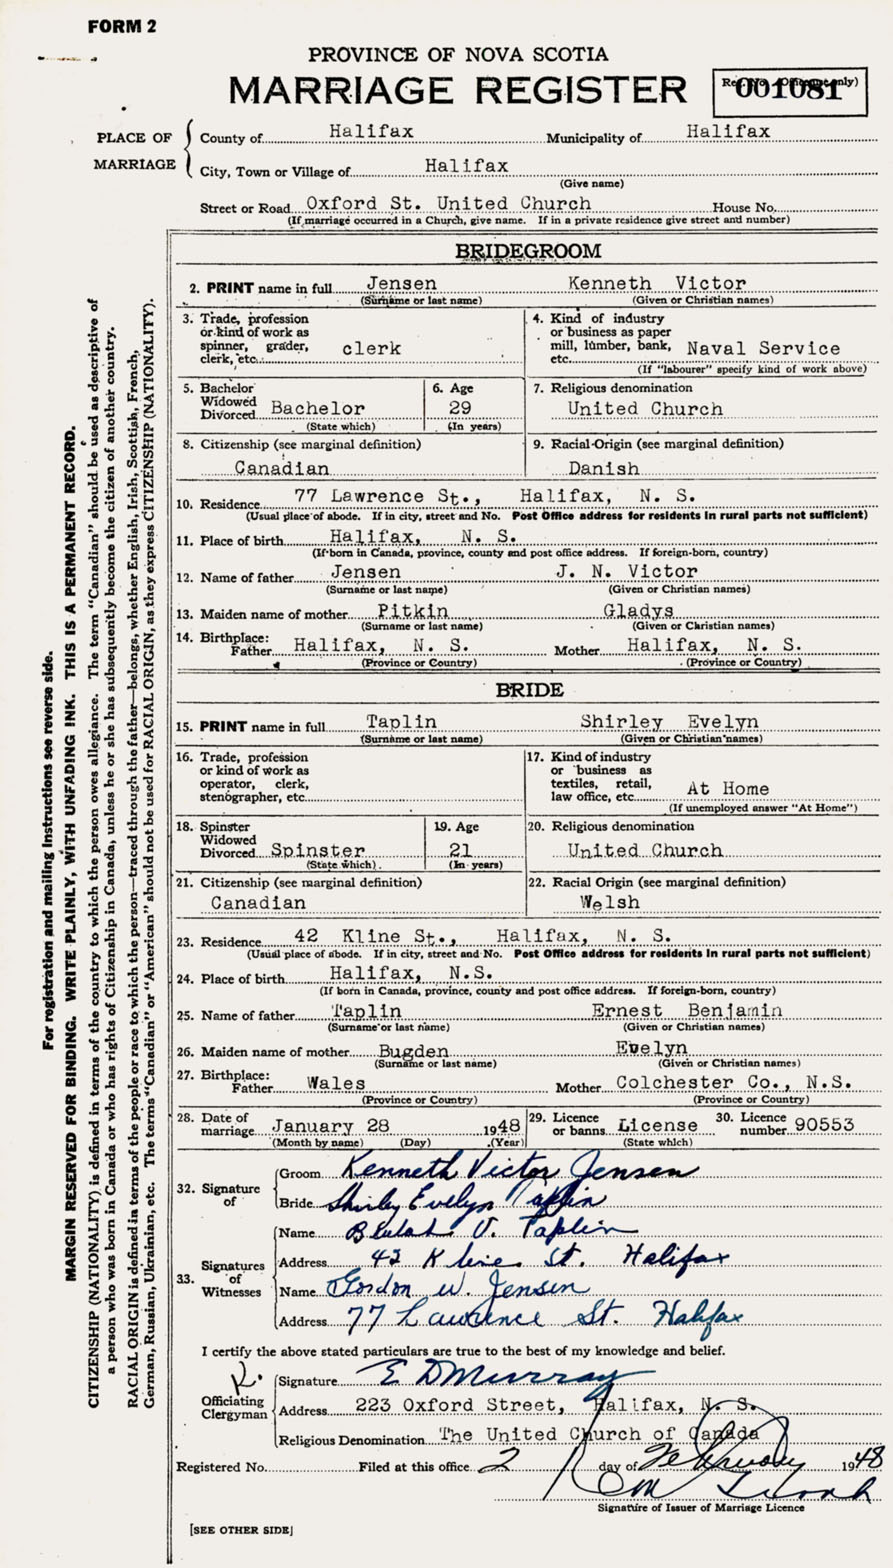 FORM 2
PROVINCE OF NOVA SCOTIA
MARRIAGE REGISTER
001081
PLACE OF MARRIAGE
County of Halifax Municipality of Halifax
City, Town or Village of Halifax
(Give name)
Street or Road Oxford St. United Church House No.
(If marriage occurred in a Church, give name. If in a private residence give street and number)
BRIDEGROOM
2. PRINT name in full Jensen Kenneth Victor
(Surname or last name) (Given or Christian names)
3. Trade, profession or kind of work as spinner, grader, clerk, etc. clerk
4. Kind of industry or business as paper mill, lumber, bank, etc. Naval Service
(If "labourer" specify kind of work above)
5. Bachelor Widowed Divorced Bachelor
(State which)
6. Age 29
(In years)
7. Religious denomination
United Church
8. Citizenship (see marginal definition)
Canadian
9. Racial Origin (see marginal definition)
Danish
10. Residence 77 Lawrence St., Halifax, N. S.
(Usual place of abode. If in city, street and No. Post Office address for residents in rural parts not sufficient)
11. Place of birth Halifax, N. S.
(If born in Canada, province, county and post office address. If foreign-born, country)
12. Name of father Jensen J. N. Victor
(Surname or last name) (Given or Christian names)
13. Maiden name of mother Pitkin Gladys
(Surname or last name) (Given or Christian names)
14. Birthplace: Father Halifax, N. S. Mother Halifax, N. S.
(Province or Country) (Province or Country)
BRIDE
15. PRINT name in full Taplin Shirley Evelyn
(Surname or last name) (Given or Christian names)
16. Trade, profession or kind of work as operator, clerk, stenographer, etc.
17. Kind of industry or business as textiles, retail, law office, etc. At Home
(If unemployed answer "At Home")
18. Spinster Widowed Divorced Spinster
(State which)
19. Age 21
(In years)
20. Religious denomination
United Church
21. Citizenship (see marginal definition)
Canadian
22. Racial Origin (see marginal definition)
Welsh
23. Residence 42 Kline St., Halifax, N. S.
(Usual place of abode. If in city, street and No. Post Office address for residents in rural parts not sufficient)
24. Place of birth Halifax, N.S.
(If born in Canada, province, county and post office address. If foreign-born, country)
25. Name of father Taplin Ernest Benjamin
(Surname or last name) (Given or Christian names)
26. Maiden name of mother Bugden Evelyn
(Surname or last name) (Given or Christian names)
27. Birthplace: Father Wales Mother Colchester Co., N.S.
(Province or Country) (Province or Country)
28. Date of marriage January 28 1948
(Month by name) (Day) (Year)
29. Licence or banns License
(State which)
30. Licence number 90553
32. Signature of
Groom Kenneth Victor Jensen
Bride Shirley Evelyn Taplin
33. Signatures of Witnesses
Name Beulah V. Taplin
Address 42 Kline St. Halifax
Name Gordon W. Jensen
Address 77 Lawrence St. Halifax
I certify the above stated particulars are true to the best of my knowledge and belief.
Officiating Clergyman
Signature E D Murray
Address 223 Oxford Street, Halifax, N. S.
Religious Denomination The United Church of Canada
Registered No. Filed at this office 2 day of February 1948
Signature of Issuer of Marriage Licence
[SEE OTHER SIDE]
For registration and mailing instructions see reverse side.
MARGIN RESERVED FOR BINDING. WRITE PLAINLY, WITH UNFADING INK. THIS IS A PERMANENT RECORD.
CITIZENSHIP (NATIONALITY) is defined in terms of the country to which the person owes allegiance. The term "Canadian" should be used as descriptive of
a person who was born in Canada or who has rights of Citizenship in Canada, unless he or she has subsequently become the citizen of another country.
RACIAL ORIGIN is defined in terms of the people or race to which the person—traced through the father—belongs, whether English, Irish, Scottish, French,
German, Russian, Ukrainian, etc. The terms "Canadian" or "American" should not be used for RACIAL ORIGIN, as they express CITIZENSHIP (NATIONALITY).